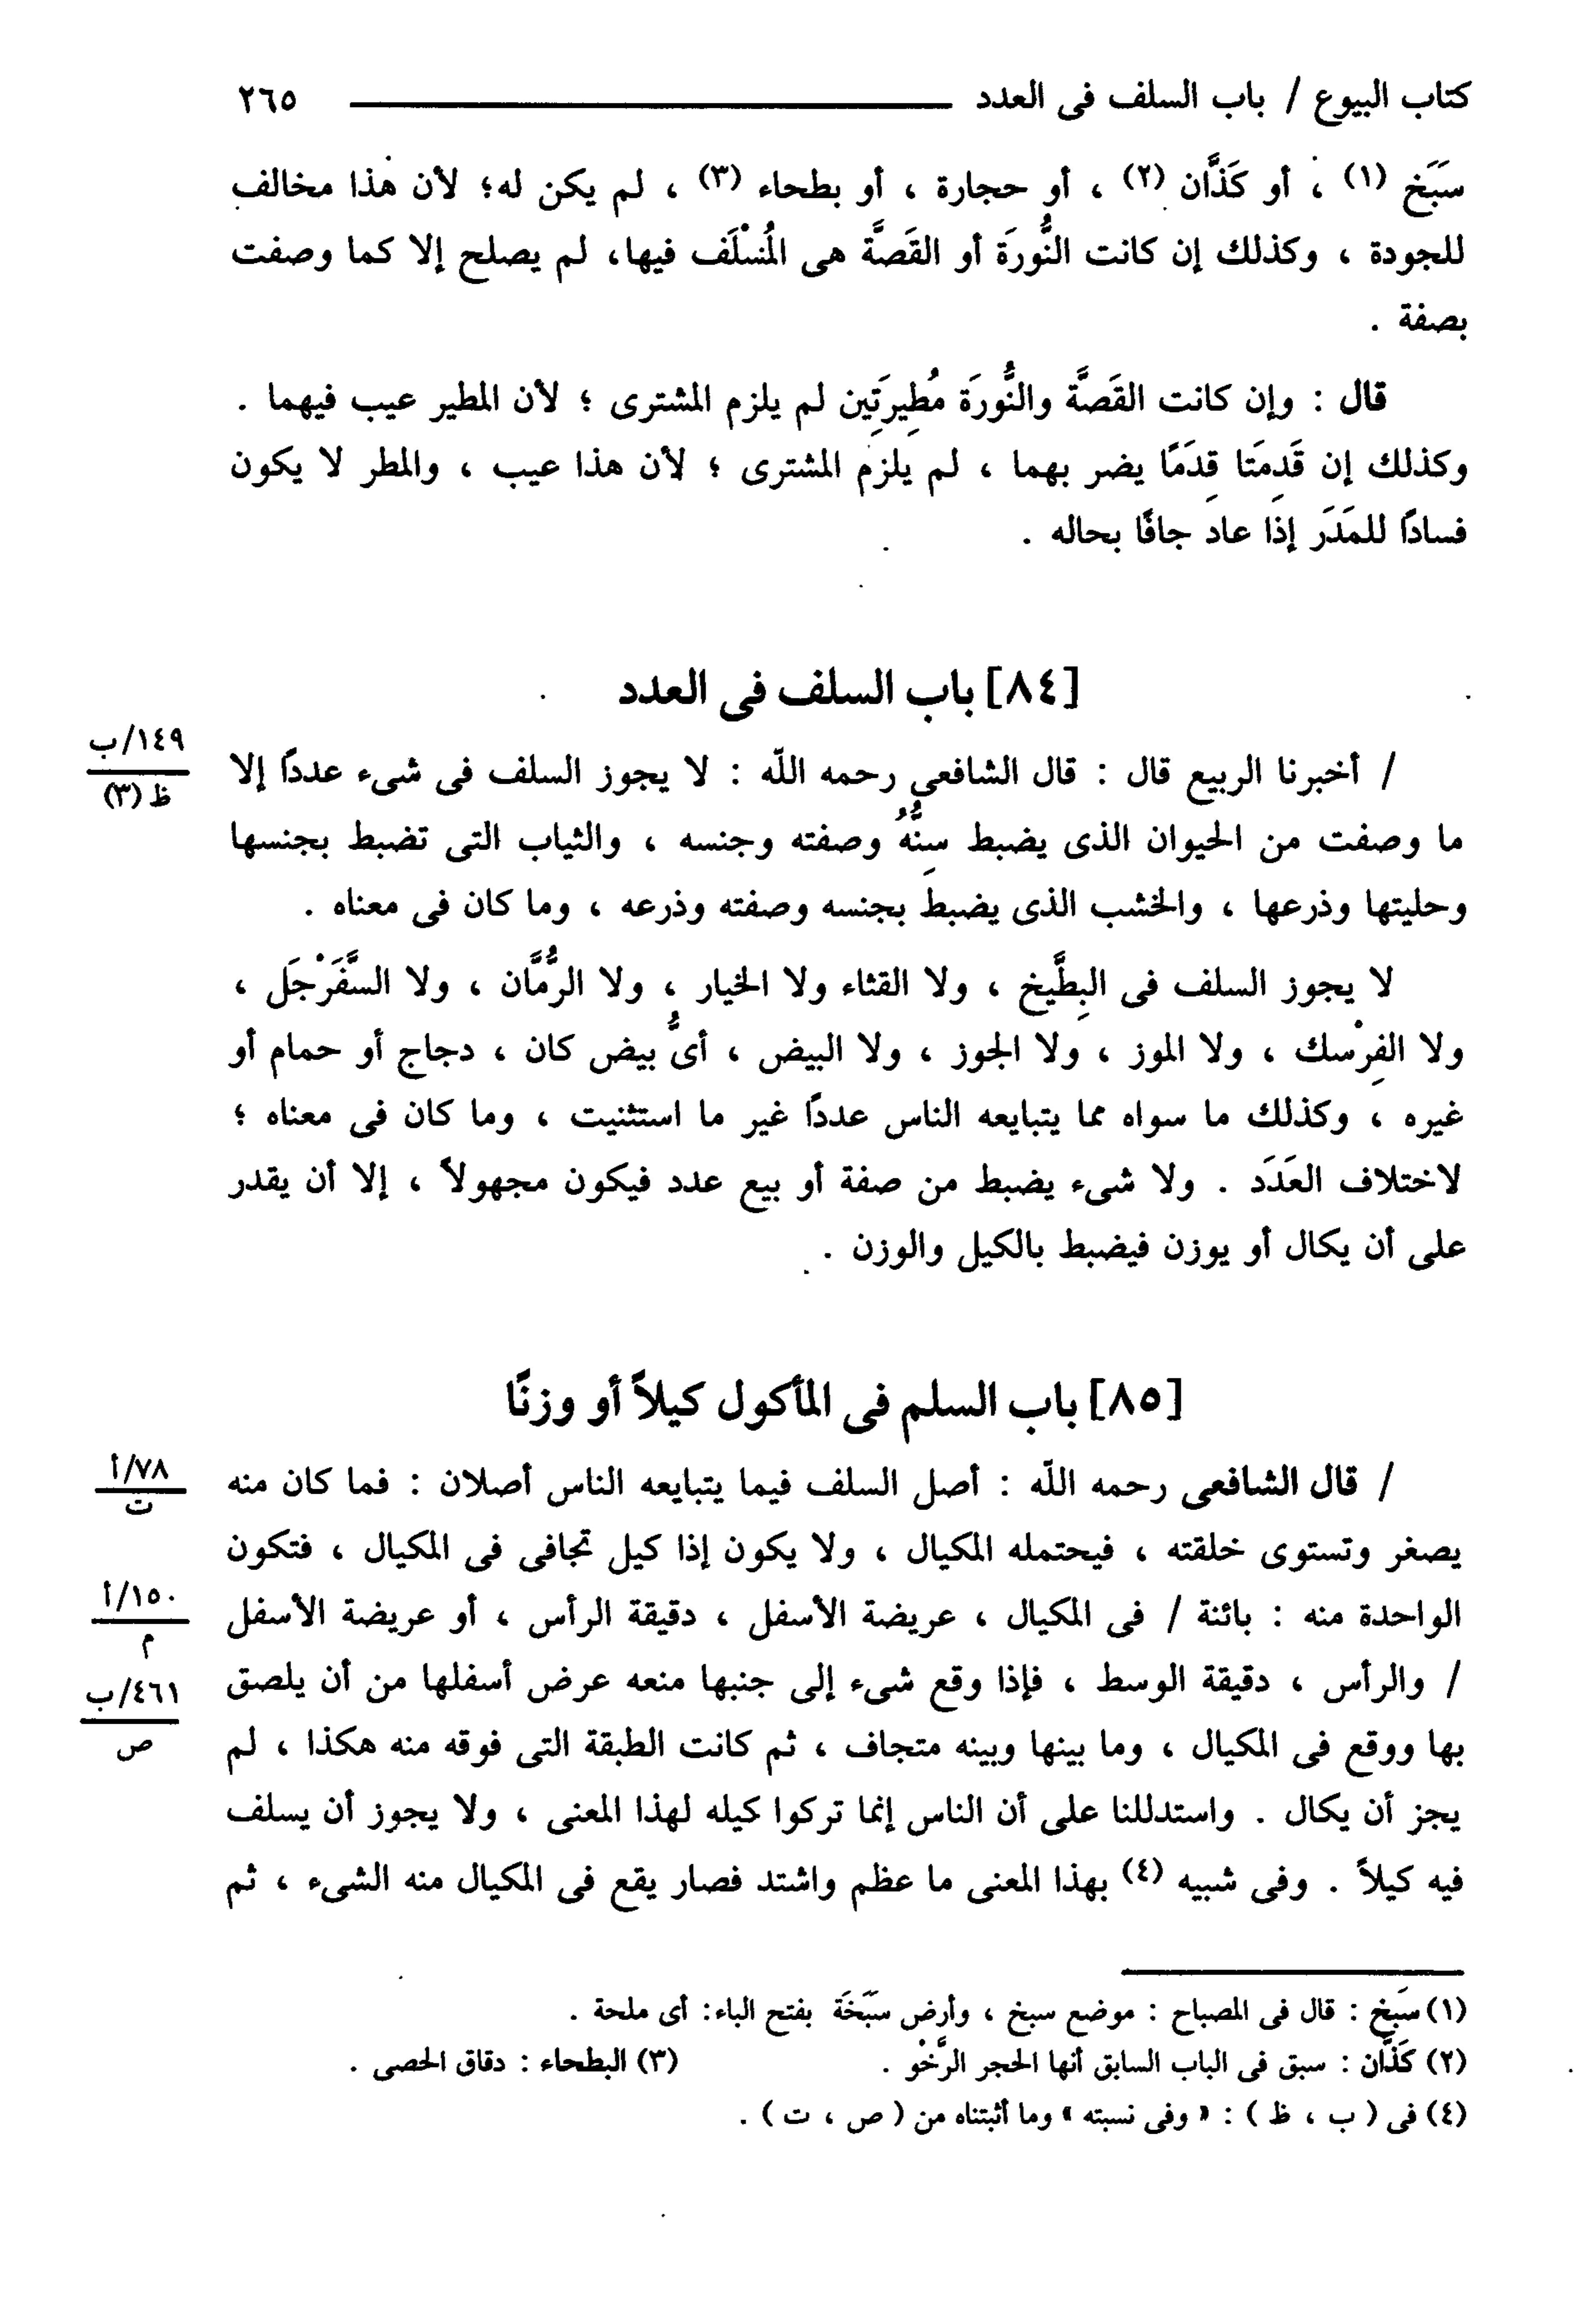 كتاب البيوع / باب السلف فى العدد ــــــــــــــــــــ ٢٦٥
سَبَخ (١) ، أو كَذَّان (٢) ، أو حجارة ، أو بطحاء (٣) ، لم يكن له؛ لأن هذا مخالف
للجودة ، وكذلك إن كانت النُّورَة أو القَصَّة هى المُسْلَف فيها، لم يصلح إلا كما وصفت
بصفة .
قال : وإن كانت القَصَّة والنُّورَة مُطِيرَتِين لم يلزم المشترى ؛ لأن المطير عيب فيهما .
وكذلك إن قَدِمَتا قِدَمًا يضر بهما ، لم يلزم المشترى ؛ لأن هذا عيب ، والمطر لا يكون
فسادًا للمَدَر إذا عاد جافًا بحاله .
[٨٤] باب السلف فى العدد
/ أخبرنا الربيع قال : قال الشافعى رحمه اللّه : لا يجوز السلف فى شىء عددًا إلا
١٤٩/ب
ظ (٣)
ما وصفت من الحيوان الذى يضبط سِنُّهُ وصفته وجنسه ، والثياب التى تضبط بجنسها
وحليتها وذرعها ، والخشب الذى يضبط بجنسه وصفته وذرعه ، وما كان فى معناه .
لا يجوز السلف فى البِطَّيخ ، ولا القثاء ولا الخيار ، ولا الرُّمَّان ، ولا السَّفَرْجَل ،
ولا الفِرْسك ، ولا الموز ، ولا الجوز ، ولا البيض ، أىُّ بيض كان ، دجاج أو حمام أو
غيره ، وكذلك ما سواه مما يتبايعه الناس عددًا غير ما استثنيت ، وما كان فى معناه ؛
لاختلاف العَدَد . ولا شىء يضبط من صفة أو بيع عدد فيكون مجهولاً ، إلا أن يقدر
على أن يكال أو يوزن فيضبط بالكيل والوزن .
[٨٥] باب السلم فى المأكول كيلاً أو وزنًا
/ قال الشافعى رحمه اللّه : أصل السلف فيما يتبايعه الناس أصلان : فما كان منه
٧٨/أ
ت
يصغر وتستوى خلقته ، فيحتمله المكيال ، ولا يكون إذا كيل تجافى فى المكيال ، فتكون
الواحدة منه : بائنة / فى المكيال ، عريضة الأسفل ، دقيقة الرأس ، أو عريضة الأسفل
١٥٠/أ
م
/ والرأس ، دقيقة الوسط ، فإذا وقع شىء إلى جنبها منعه عرض أسفلها من أن يلصق
٤٦١/ب
ص
بها ووقع فى المكيال ، وما بينها وبينه متجاف ، ثم كانت الطبقة التى فوقه منه هكذا ، لم
يجز أن يكال . واستدللنا على أن الناس إنما تركوا كيله لهذا المعنى ، ولا يجوز أن يسلف
فيه كيلاً . وفى شبيه (٤) بهذا المعنى ما عظم واشتد فصار يقع فى المكيال منه الشىء ، ثم
(١) سَبَخ : قال فى المصباح : موضع سبخ ، وأرض سَبَخَة بفتح الباء: أى ملحة .
(٢) كَذَّان : سبق فى الباب السابق أنها الحجر الرَّخْو . (٣) البطحاء : دقاق الحصى .
(٤) فى ( ب ، ظ ) : « وفى نسبته » وما أثبتناه من ( ص ، ت ) .